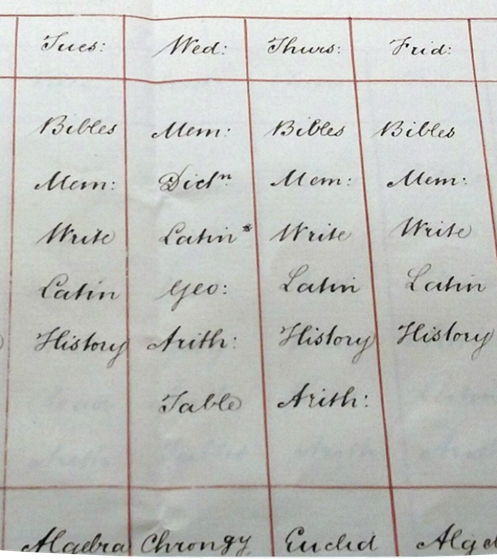 Tues: Wed: Thurs: Frid:
Bibles Mem: Bibles Bibles
Mem: Dictn Mem: Mem:
Write Latin* Write Write
Latin Geo: Latin Latin
History Arith: History History
Table Arith:
Algebra Chrongy Euclid Alge